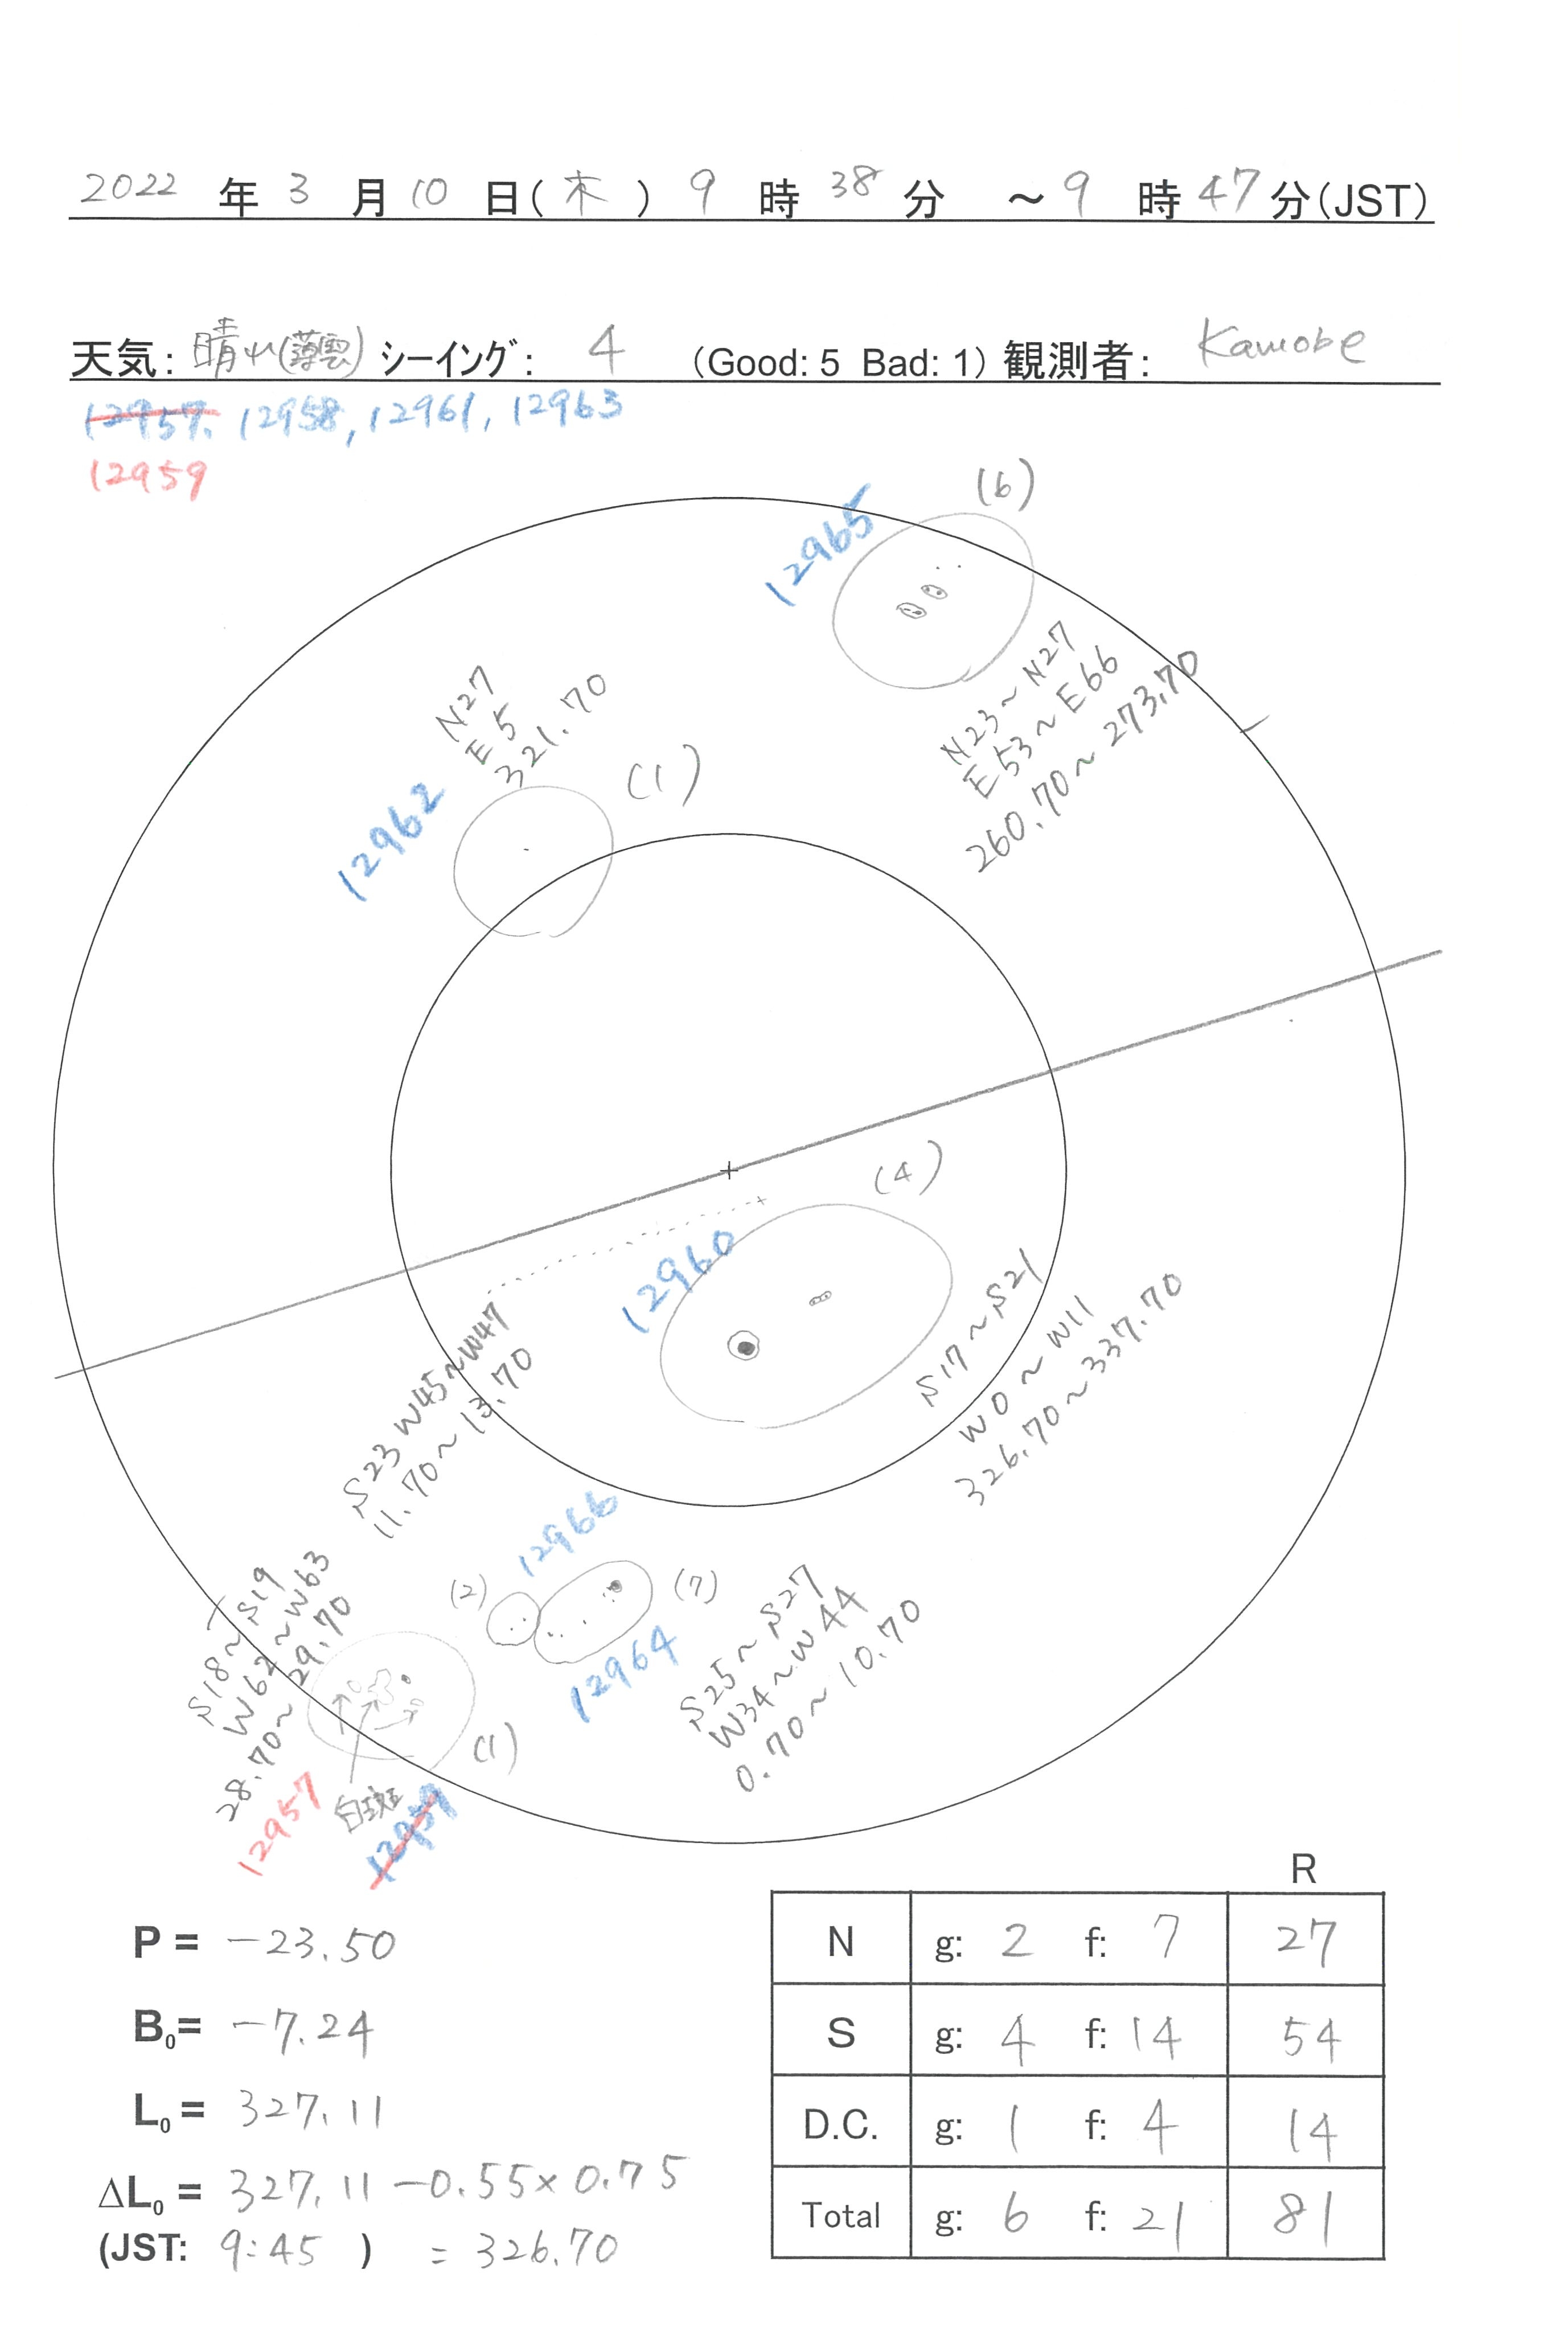 2022 年 3 月 10 日(木) 9 時 38 分 ～9 時 47 分(JST)
天気: 晴れ(薄雲) シーイング: 4 (Good: 5 Bad: 1) 観測者: Kamobe
12957, 12958, 12961, 12963
12959
(6)
12965
N23～N27
E53～E66
260.70～273.70
N27
E5
321.70
(1)
12962
(4)
12960
S17～S21
W0～W11
326.70～337.70
S23 W45～W47
11.70～13.70
12966
(2)
(7)
12964
S25～S27
W34～W44
0.70～10.70
S18～S19
W62～W63
28.70～29.70
(1)
12957
白斑
12959
P = -23.50
B0= -7.24
L0 = 327.11
ΔL0 = 327.11 -0.55×0.75
(JST: 9:45 ) = 326.70
R
N g: 2 f: 7 27
S g: 4 f: 14 54
D.C. g: 1 f: 4 14
Total g: 6 f: 21 81